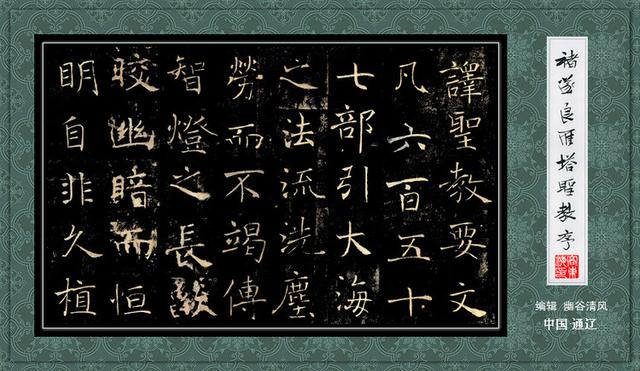 譯聖教要文
凡六百五十
七部引大海
之法流洗塵
勞而不竭傳
智燈之長燄
晈幽暗而恒
明自非久植
褚遂良雁塔聖教序
编辑 幽谷清风
中国·通辽